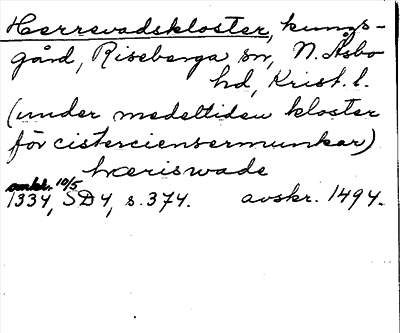 Herrevadskloster, kungs-
gård, Riseberga sn, N. Åsbo
hd, Krist. l.
(under medeltiden kloster
för cisterciensermunkar)
hæriswade
omkr. 10/5
1334, SD4, s. 374. avskr. 1494.